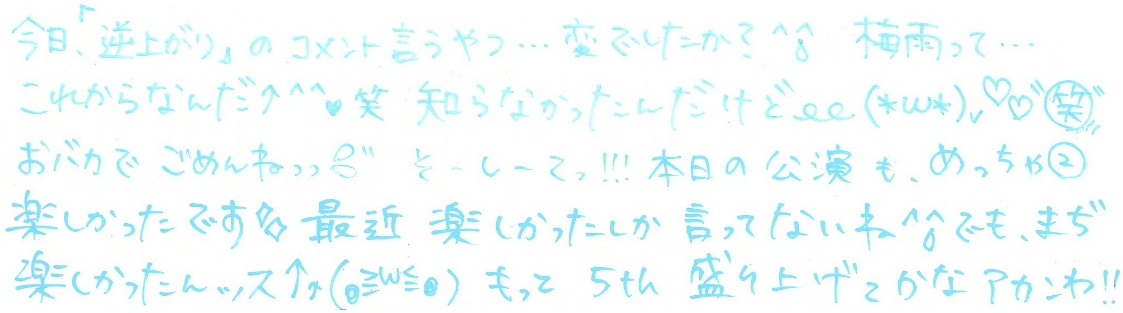 今日、「逆上がり」の コメント言うやつ… 変でしたか？^^; 梅雨って…
これからなんだ↑^^♥笑 知らなかったんだけどee(*ω*)、♡♡"笑"
おバカで ごめんねっっ" そーしーてっ!!! 本日の 公演 も、めっちゃ②
楽しかったです 最近 楽しかったしか 言ってないね^^;でも、まぢ
楽しかったんッス↑♪(๑≧ω≦๑) もって 5th 盛り上げてかなアカンわ!!